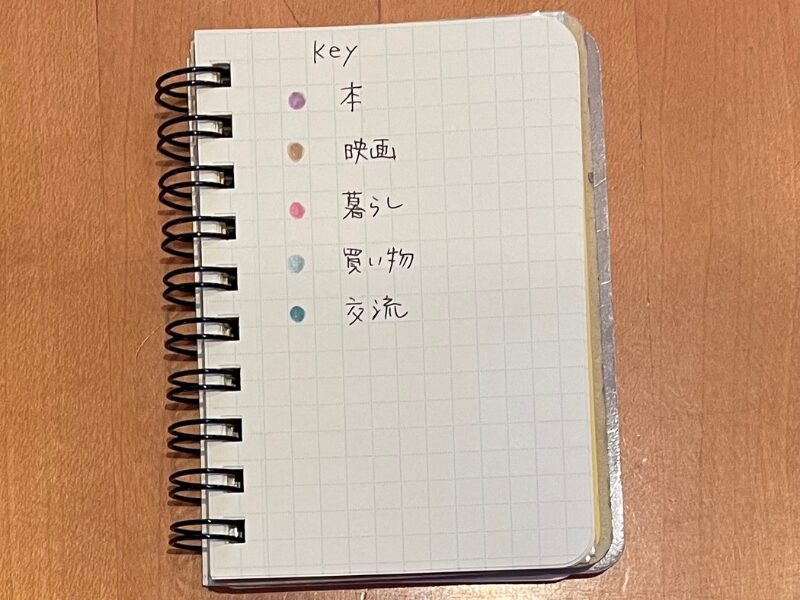 Key
本
映画
暮らし
買い物
交流